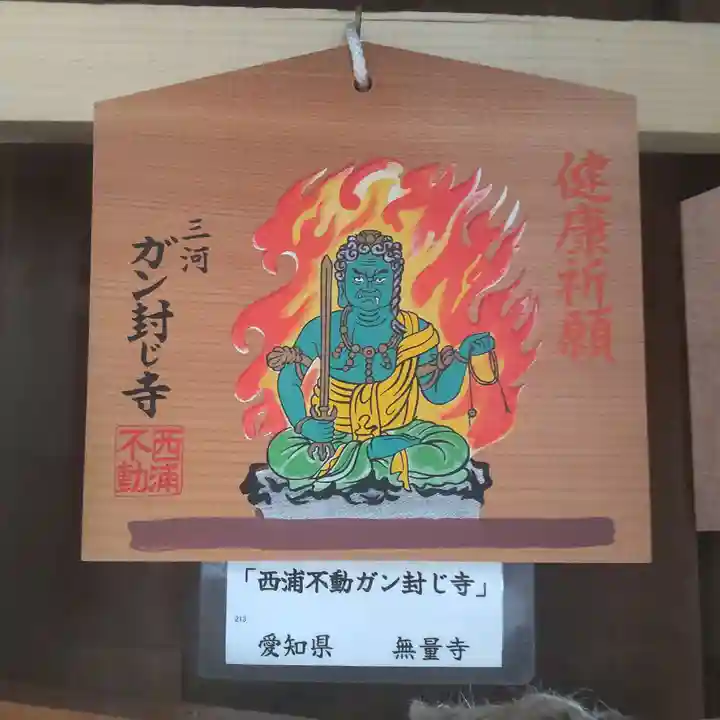 健康祈願
三河
ガン封じ寺
西浦
不動
「西浦不動ガン封じ寺」
213
愛知県 無量寺